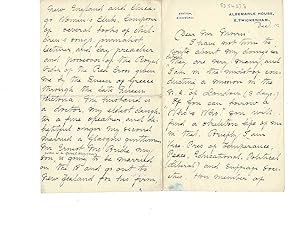 New England and Chica-
go Women's Clubs. Composer
of several books of chil-
dren's songs, journalist
lecturer and lay preacher
and possessor of the Royal
Order of the Red Cross given
me by the Queen of Greece
through the late Queen
Victoria. My husband is
a doctor, my eldest daughter
a fine speaker and
beautiful singer my second
married a Glasgow
Mr Ernest McBride, my
son is going to be married
on the 18 and go out to
New Zealand for his firm,
STATION,
ALBEMARLE HOUSE,
E. TWICKENHAM.
Dec
Dear Mr Morris
I have not time to
write about my doings as
they are very many and
I am in the midst of con-
ducting a mission in the
of London (8 days)
If you can borrow a
Who's Who. You will
find a skeleton life of me
in that. Briefly, I am
Pres of Temperance,
Peace, Educational, Political
(Liberal) and Suffrage Soci-
eties. Hon member of